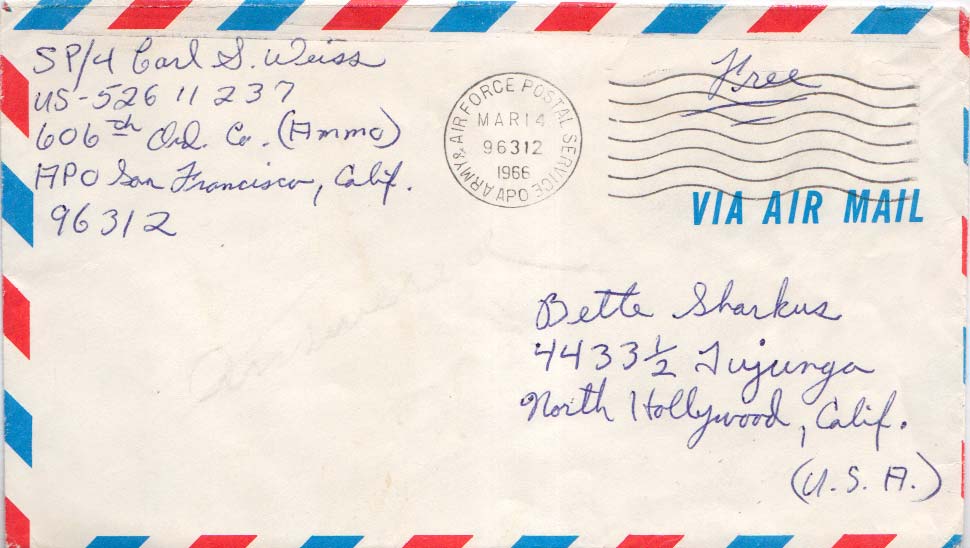 SP/4 Carl S. Weiss
US-526 11 237
606th Ord. Co. (Ammo)
APO San Francisco, Calif.
96312
ARMY & AIR FORCE POSTAL SERVICE
MAR 14
96312
1966
APO
Free
VIA AIR MAIL
Answered
Bette Sharkus
4433 1/2 Tujunga
North Hollywood, Calif.
(U.S.A.)